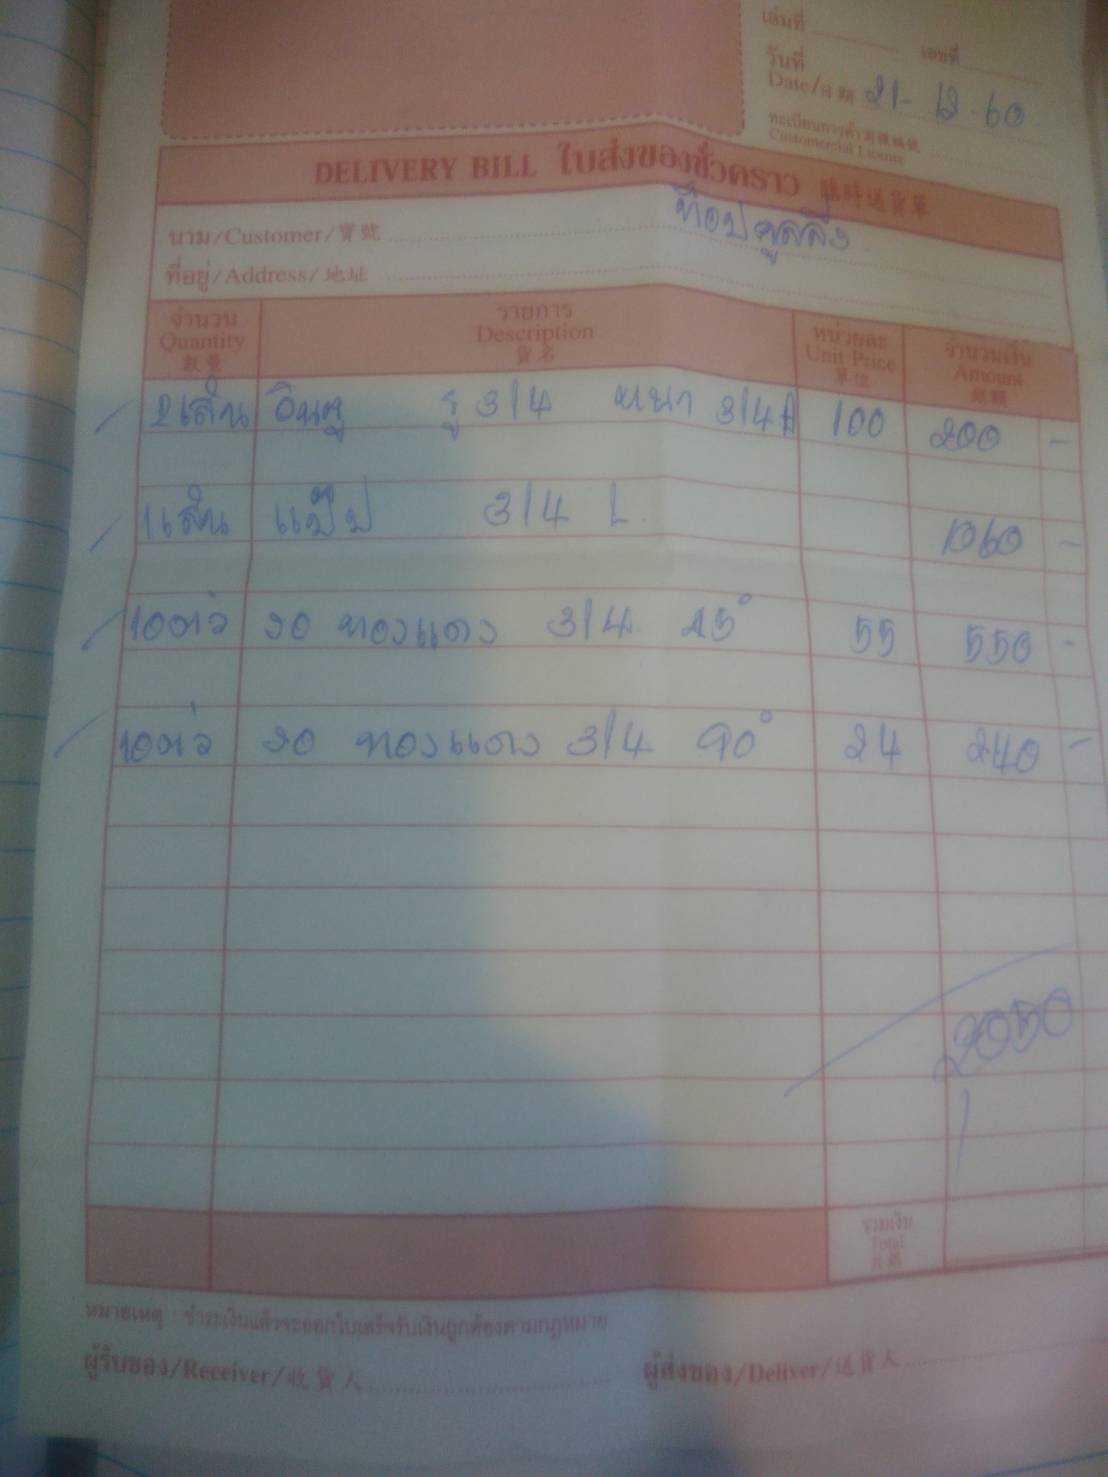 เล่มที่ เลขที่
วันที่
Date/日期 21-12-60
ทะเบียนการค้า/商牌編號
Customercial License
DELIVERY BILL ใบส่งของชั่วคราว 臨時送貨單
นาม/Customer/寶號 ท๊อปคูลลิ่ง
ที่อยู่/Address/地址
จำนวน รายการ หน่วยละ จำนวนเงิน
Quantity Description Unit Price Amount
數量 貨名 單位
2เส้น อินซู รู 3/4 หนา 3/4 100 200 -
1เส้น แป๊ป 3/4 L 1060 -
10ตัว งอ ทองแดง 3/4 45° 55 550 -
10ตัว งอ ทองแดง 3/4 90° 24 240 -
2050
รวมเงิน
Total
หมายเหตุ ชำระเงินแล้วจะออกใบเสร็จรับเงินถูกต้องตามกฎหมาย
ผู้รับของ/Receiver/收貨人 ผู้ส่งของ/Deliver/送貨人